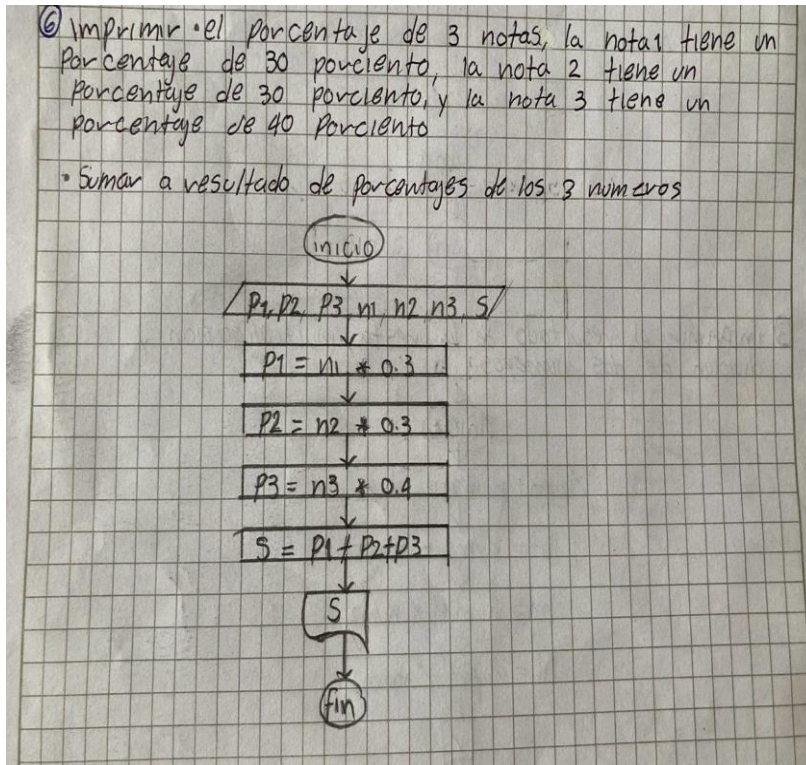 6 imprimir el porcentaje de 3 notas, la nota1 tiene un
porcentaje de 30 porciento, la nota 2 tiene un
porcentaje de 30 porciento, y la nota 3 tiene un
porcentaje de 40 porciento
• Sumar a resultado de porcentajes de los 3 numeros
inicio
P1, P2, P3, n1, n2, n3, S
P1 = n1 * 0.3
P2 = n2 * 0.3
P3 = n3 * 0.4
S = P1 + P2+P3
S
fin